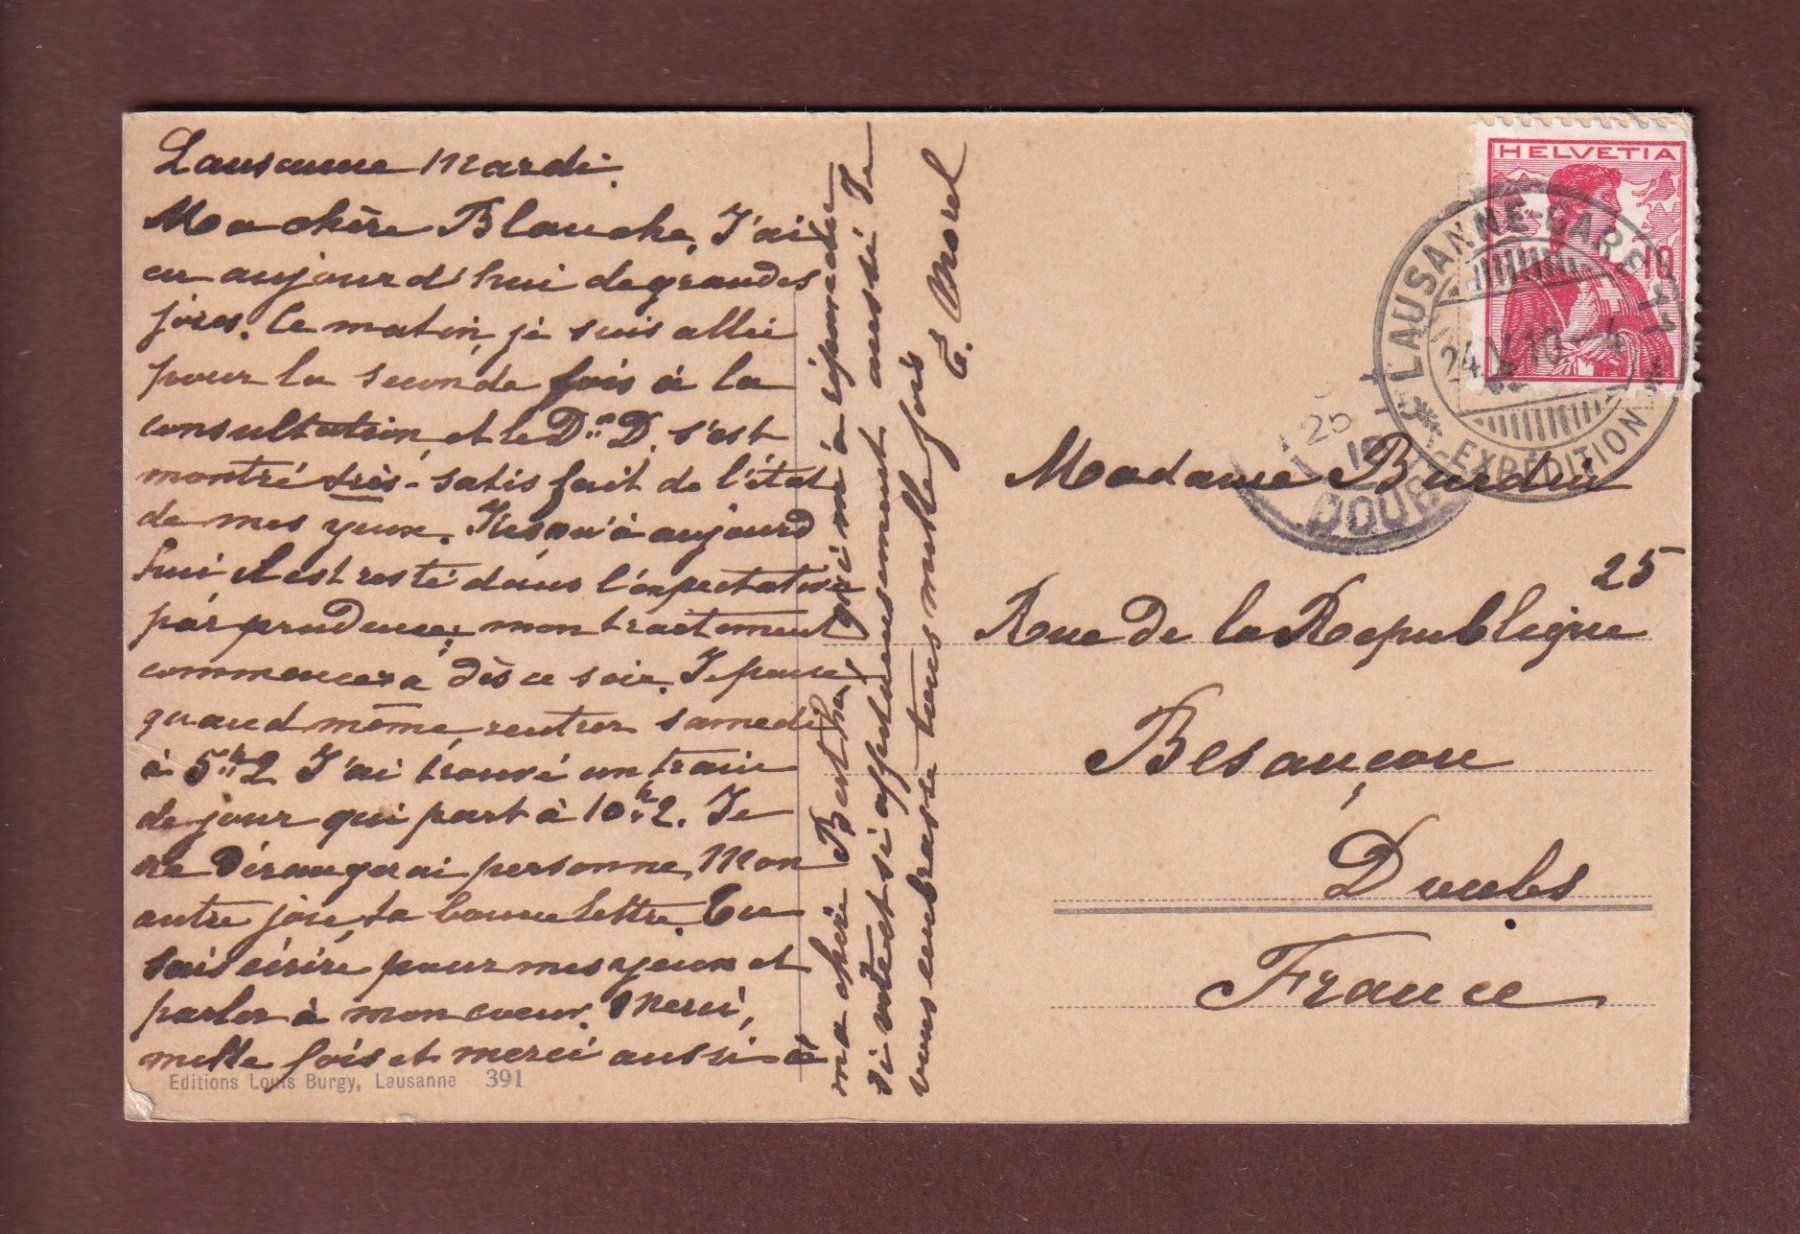 Lausanne Mardi.
Ma chère Blanche, J'ai
eu aujourd'hui de grandes
joies. Ce matin, je suis allée
pour la seconde fois à la
consultation, et le Dr D. s'est
montré très-satisfait de l'état
de mes yeux. Jusqu'à aujourd
hui il est resté dans l'expectative
par prudence; mon traitement
commencera dès ce soir. Je pense
quand même, rentrer samedi
à 5h2 J'ai trouvé un train
de jour qui part à 10h2. Je
ne dérangerai personne. Mon
autre joie, ta bonne lettre. Tu
sais écrire pour mes yeux et
parler à mon coeur. Merci,
mille fois et merci aussi à
ma chère Berthe qui m'a répondu
si vite et si affectueusement aussi. Je
vous embrasse tous mille fois
E. Morel
Editions Louis Burgy, Lausanne 391
HELVETIA
10
LAUSANNE-GARE
24 V 10-4
EXPÉDITION
25
DOUB
Madame Burdin
25
Rue de la Republique
Besançon
Doubs
France